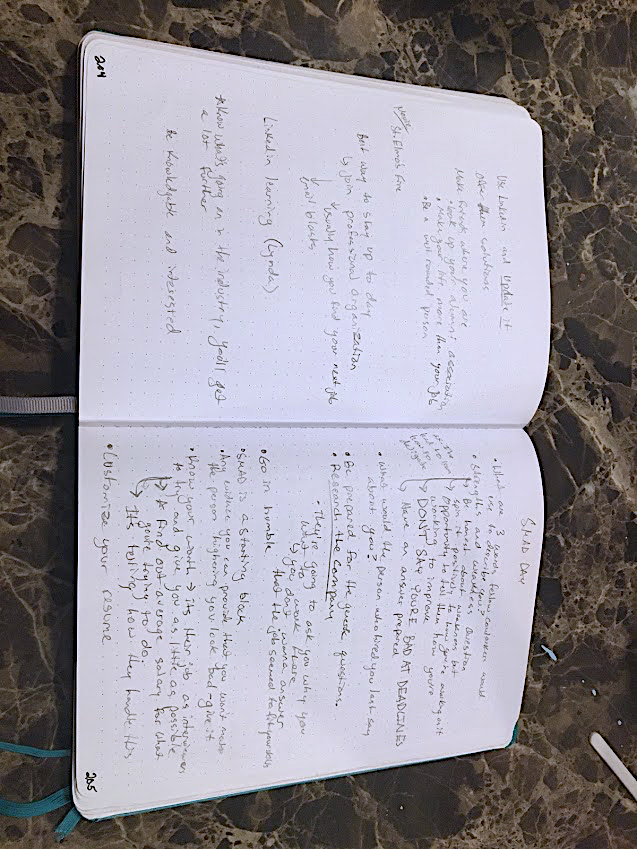 204
Use Linkedin and Update it
offer them solutions
Make friends where you are
• Look up your alumni association
• Make your life more than your job
• Be a well rounded person
St. Elmo's Fire
Best way to stay up to day
↳ join professional organization
↓ usually how you find your next job
email blasts
Linkedin learning (Lynda)
* Know what's going on in the industry, you'll get
a lot further
be knowledgable and interested
SHAD DAY
• What are 3 words
use to describe you?
• Strengths and weakness question
↳ Be honest about weakness but
spin it positively
opportunity to tell them how you're
working to improve
→ DON'T SAY YOU'RE BAD AT DEADLINES
↳ Have an answer prepared
• Who would the person who hired you last say
about you?
• Be prepared for the questions.
• Research the company
• They're going to ask you why you
want to work there
↳ you don't wanna answer
that the job seemed to
• Go in humble
• SHAD is a starting block
• Any evidence you can provide that you won't make
the person hiring you look bad - give it
• Know your worth → its their job as interviewers
to try and give you as little as possible
↳ * Find out average salary for what
you're trying to do.
→ Its testing how they handle this
• Customize your resume
205